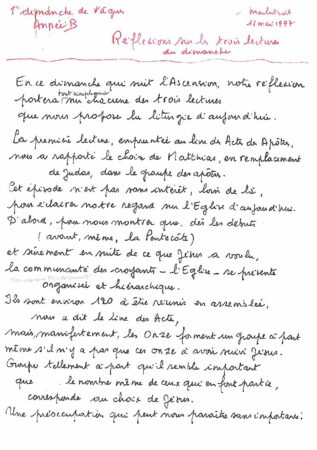 dimanche de Pâques
Année B
11 mai 1997
Réflexions sur les trois lectures
du dimanche
En ce dimanche qui suit l'Ascension, notre réflexion
tout simplement
portera sur chacune des trois lectures
que nous propose la liturgie d'aujourd'hui.
La première lecture, empruntée au livre des Actes des Apôtres,
nous a rapporté le choix de Matthias, en remplacement
de Judas, dans le groupe des apôtres.
Cet épisode n'est pas sans intérêt, loin de là,
pour éclairer notre regard sur l'Eglise d'aujourd'hui.
D'abord, pour nous montrer que, dès les débuts
(avant, même, la Pentecôte)
et sûrement en suite de ce que Jésus a voulu,
la communauté des croyants - l'Eglise - se présente
organisée et hiérarchique.
Ils sont environ 120 à être réunis en assemblée,
nous a dit le livre des Actes,
mais, manifestement, les Onze forment un groupe à part
même s'il n'y a pas que ces onze à avoir suivi Jésus.
Groupe tellement à part qu'il semble important
que le nombre même de ceux qui en font partie,
corresponde au choix de Jésus.
Une préoccupation qui peut nous paraître sans importance: